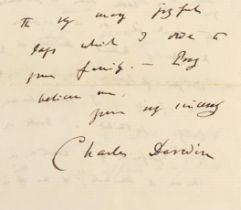 the very many joyful
days which I owe to
your family. — Pray
believe me
yours very sincerely
Charles Darwin